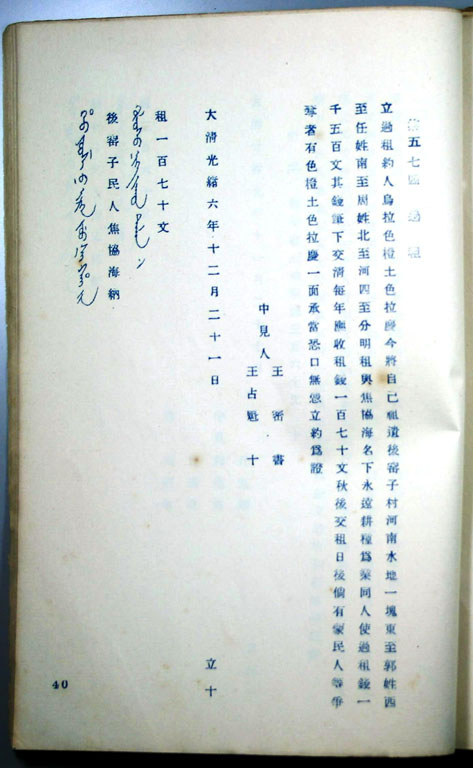 五七區 過租
立過租約人烏拉色楞土色拉慶今將自己祖遺後窰子村河南水地一塊東至郭姓西
至任姓南至周姓北至河四至分明租與焦協海名下永遠耕種爲業同人使過租錢一
千五百文其錢筆下交清每年應收租錢一百七十文秋後交租日後倘有蒙民人等爭
奪者有色楞土色拉慶一面承當恐口無憑立約爲證
中見人 王密書
王占魁 十
大清光緒六年十二月二十一日
立十
租一百七十文
後窰子民人焦協海納
40